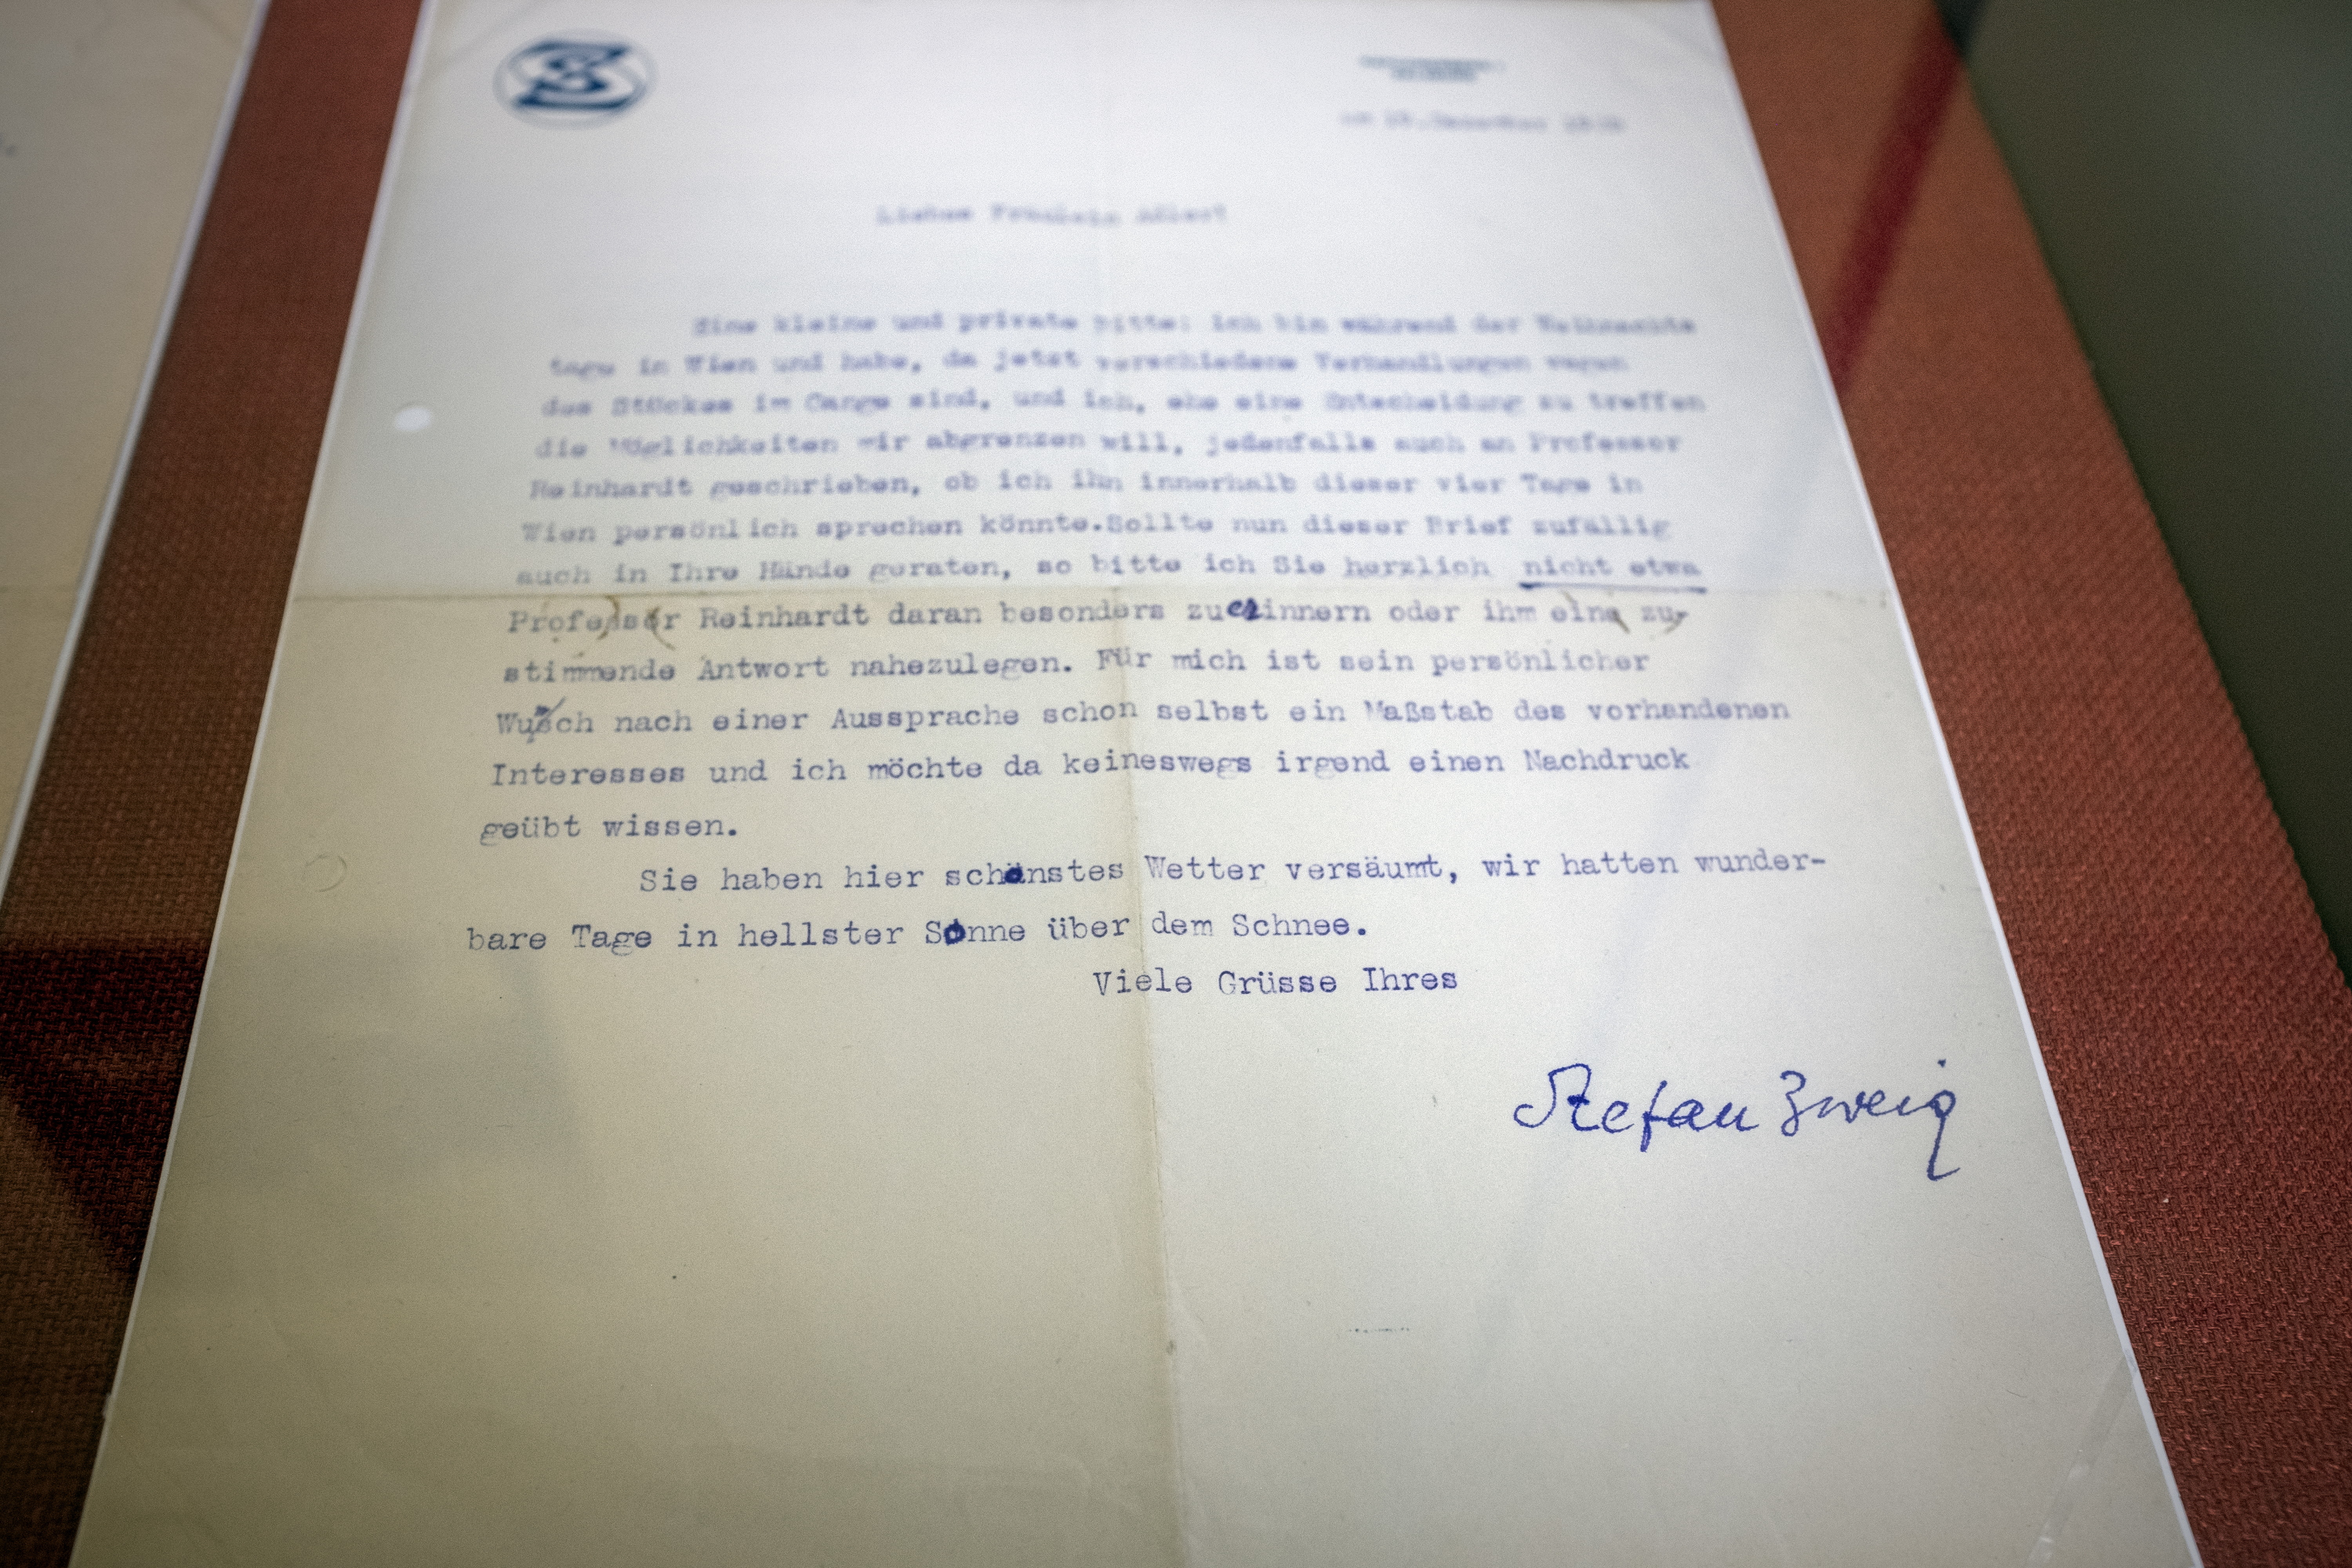 SZ
Liebes Fräulein Adler!
Eine kleine und private bitte: ich bin während der Weihnachts
tage in Wien und habe, da jetzt verschiedene Verhandlungen wegen
des Stückes im Gange sind, und ich, ehe eine Entscheidung zu treffen
die Möglichkeiten mir abgrenzen will, jedenfalls auch an Professor
Reinhardt geschrieben, ob ich ihn innerhalb dieser vier Tage in
Wien persönlich sprechen könnte.Sollte nun dieser Brief zufällig
auch in Ihre Hände geraten, so bitte ich Sie herzlich nicht etwa
Professor Reinhardt daran besonders zuerinnern oder ihm eine zu-
stimmende Antwort nahezulegen. Für mich ist sein persönlicher
Wunsch nach einer Aussprache schon selbst ein Maßstab des vorhandenen
Interesses und ich möchte da keineswegs irgend einen Nachdruck
geübt wissen.
Sie haben hier schönstes Wetter versäumt, wir hatten wunder-
bare Tage in hellster Sonne über dem Schnee.
Viele Grüsse Ihres
Stefan Zweig